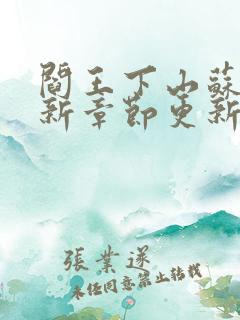 閻王下山蘇
新章節更新
張業遂
未經同意禁止轉載